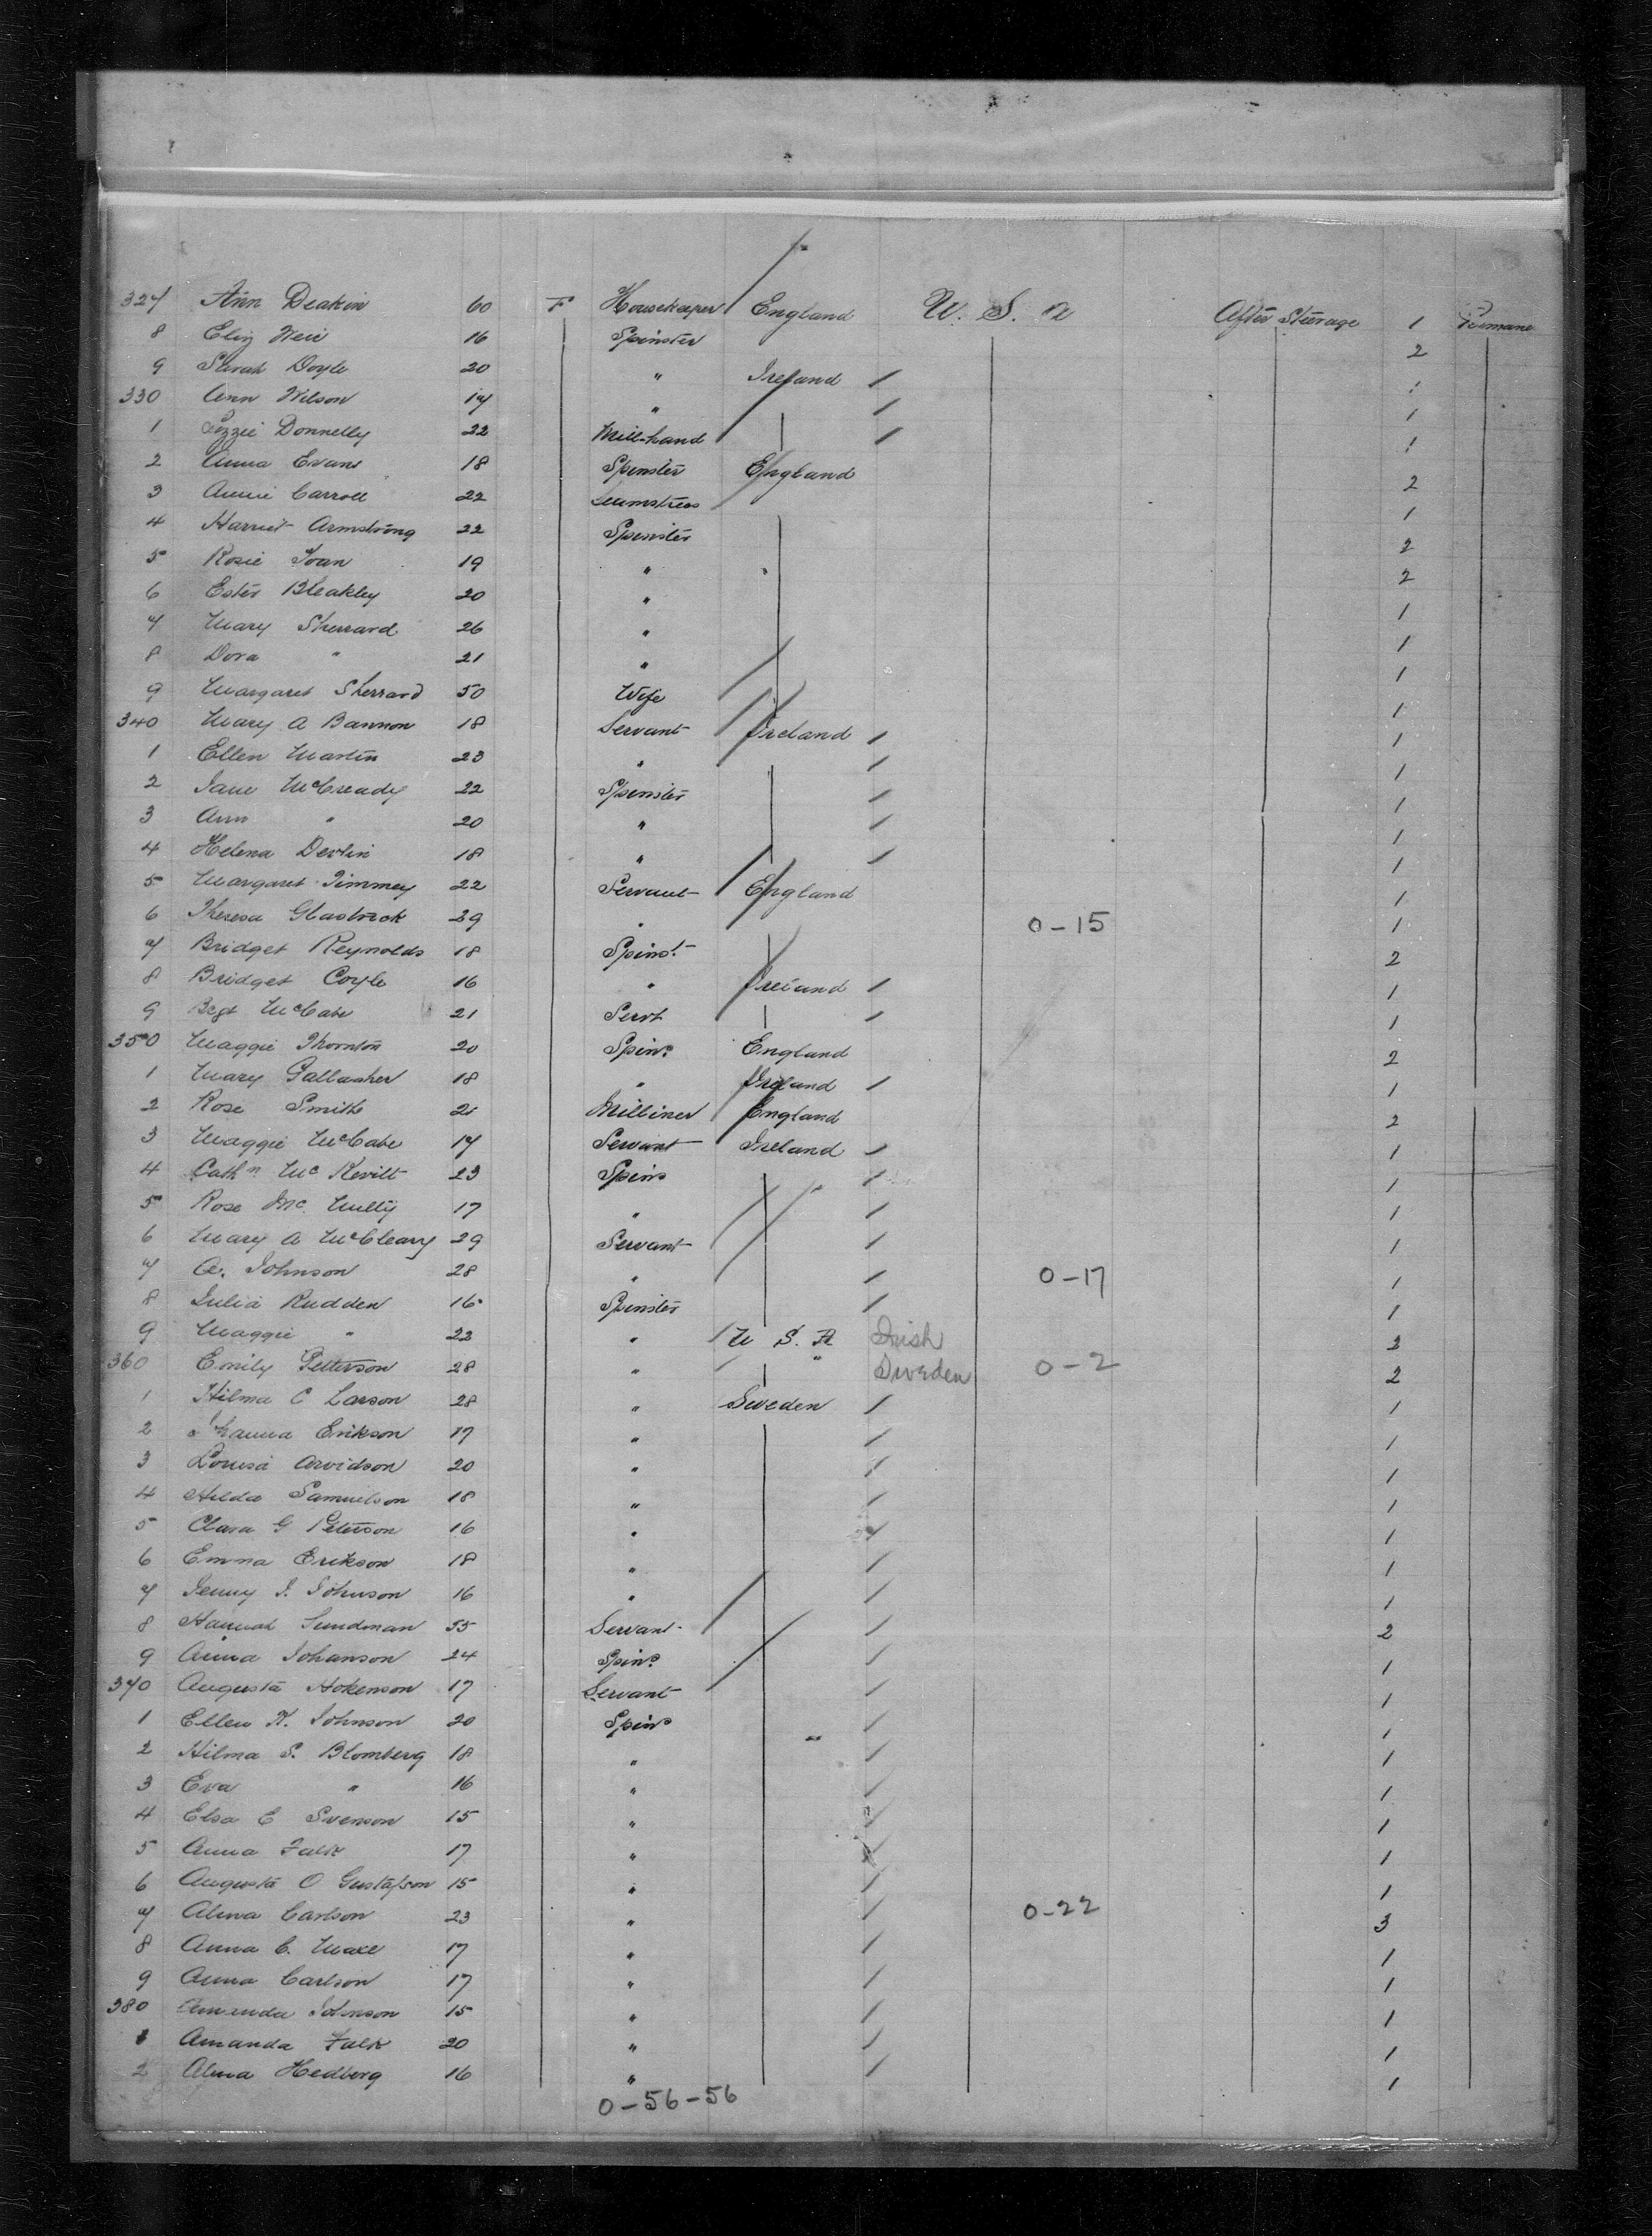 327 Ann Deakin 60 F Housekeeper England U. S. A After Steerage 1
8 Eliz Weir 16 Spinster 2
9 Sarah Doyle 20 " Ireland / 1
330 Ann Wilson 17 " / 1
1 Lizzie Donnelly 22 Mill-hand / 1
2 Anna Evans 18 Spinster England 2
3 Annie Carroll 22 Seamstress 1
4 Harriet Armstrong 22 Spinster 2
5 Rosie 19 " 2
6 Ester Bleakley 20 " 1
7 Mary Sherrard 26 " 1
8 Dora " 21 " 1
9 Margaret Sherrard 50 Wife 1
340 Mary A Bannon 18 Servant Ireland / 1
1 Ellen Martin 23 " / 1
2 Jane McCready 22 Spinster / 1
3 Ann " 20 " / 1
4 Helena Devlin 18 " / 1
5 Margaret Timmey 22 Servant England 1
6 Theresa 29 " 0-15 1
7 Bridget Reynolds 18 Spinst 2
8 Bridget Coyle 16 " Ireland / 1
9 Bgt McCabe 21 Servt / 1
350 Maggie Thornton 20 Spins England 2
1 Mary Gallagher 18 " Ireland / 1
2 Rose Smith 21 Milliner England 2
3 Maggie McCabe 17 Servant Ireland / 1
4 Cathn Mc Kevitt 23 Spins / 1
5 Rose Mc 17 " / 1
6 Mary A McCleary 29 Servant / 1
7 Johnson 28 " / 0-17 1
8 Julia Rudden 16 Spinster / 1
9 Maggie " 22 " U S. A Irish 2
360 Emily Petterson 28 " " Sweden 0-2 2
1 Hilma C Larson 28 " Sweden / 1
2 Erikson 17 " / 1
3 Louisa Arvidson 20 " / 1
4 Hilda Samuelson 18 " / 1
5 Clara G Peterson 16 " / 1
6 Emma Erikson 18 " / 1
7 Jenny J. Johnson 16 " / 1
8 Hannah Sundman 55 Servant / 2
9 Anna Johanson 24 Spins / 1
370 Augusta Hokenson 17 Servant / 1
1 Ellen K. Johnson 20 Spins " / 1
2 Hilma S. Blomberg 18 " / 1
3 Eva " 16 " / 1
4 Elsa E Svenson 15 " / 1
5 Anna Falk 17 " / 1
6 Augusta O Gustafson 15 " / 1
7 Alma Carlson 23 " / 0-22 3
8 Anna C. 17 " / 1
9 Anna Carlson 17 " / 1
380 Amanda Johnson 15 " / 1
1 Amanda Falk 20 " / 1
2 Alma Hedberg 16 " / 1
0-56-56